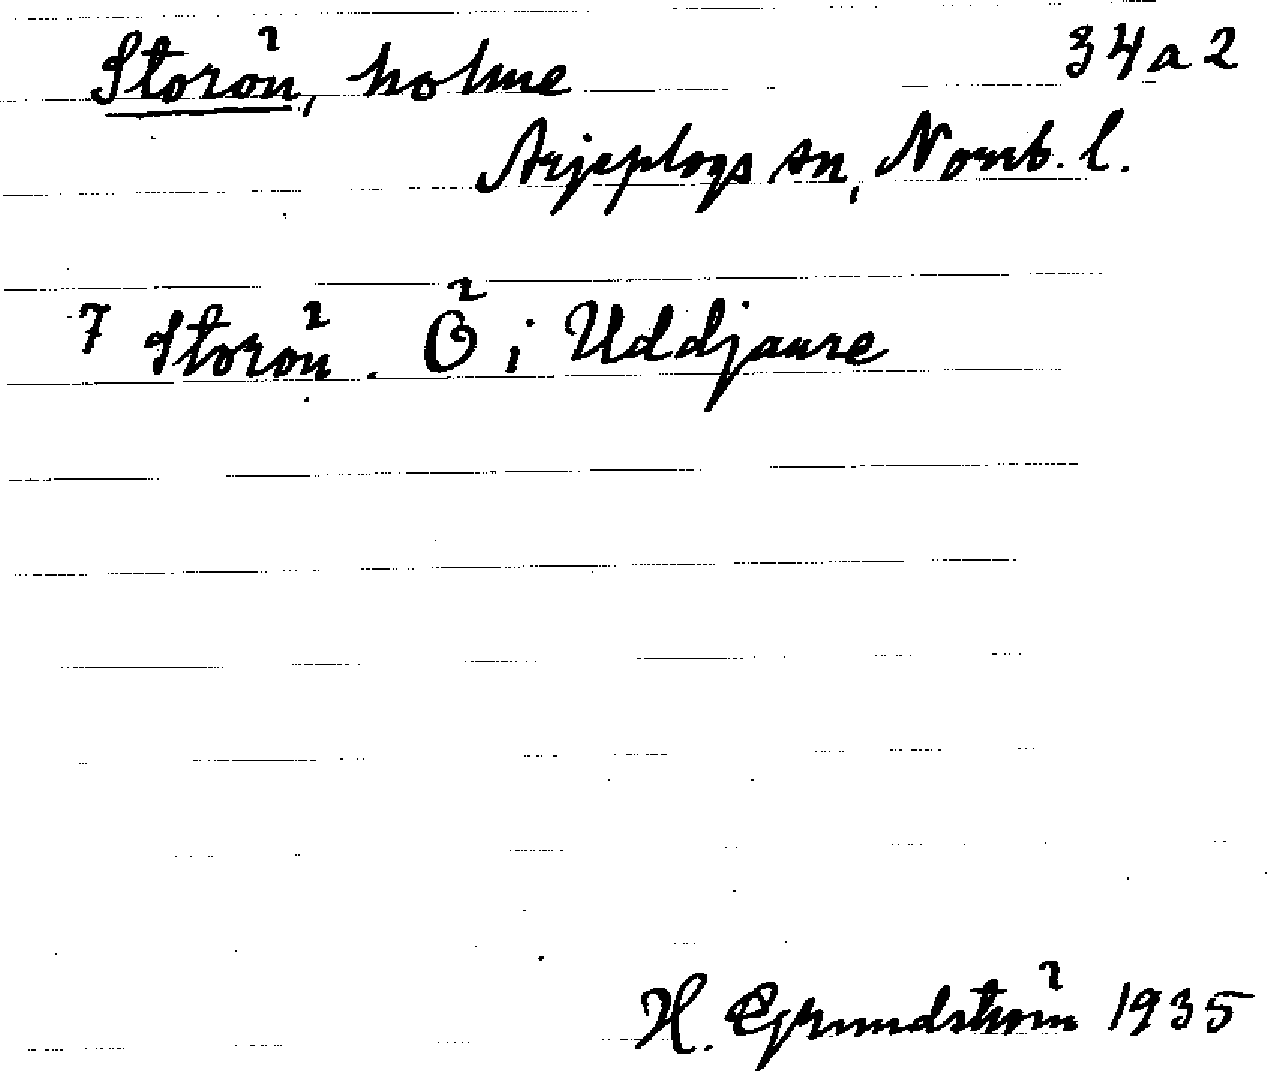 Storön, holme 34a2
Arjeplogs sn, Norrb. l.
7 Storön. Ö i Uddjaure
H. Grundström 1935